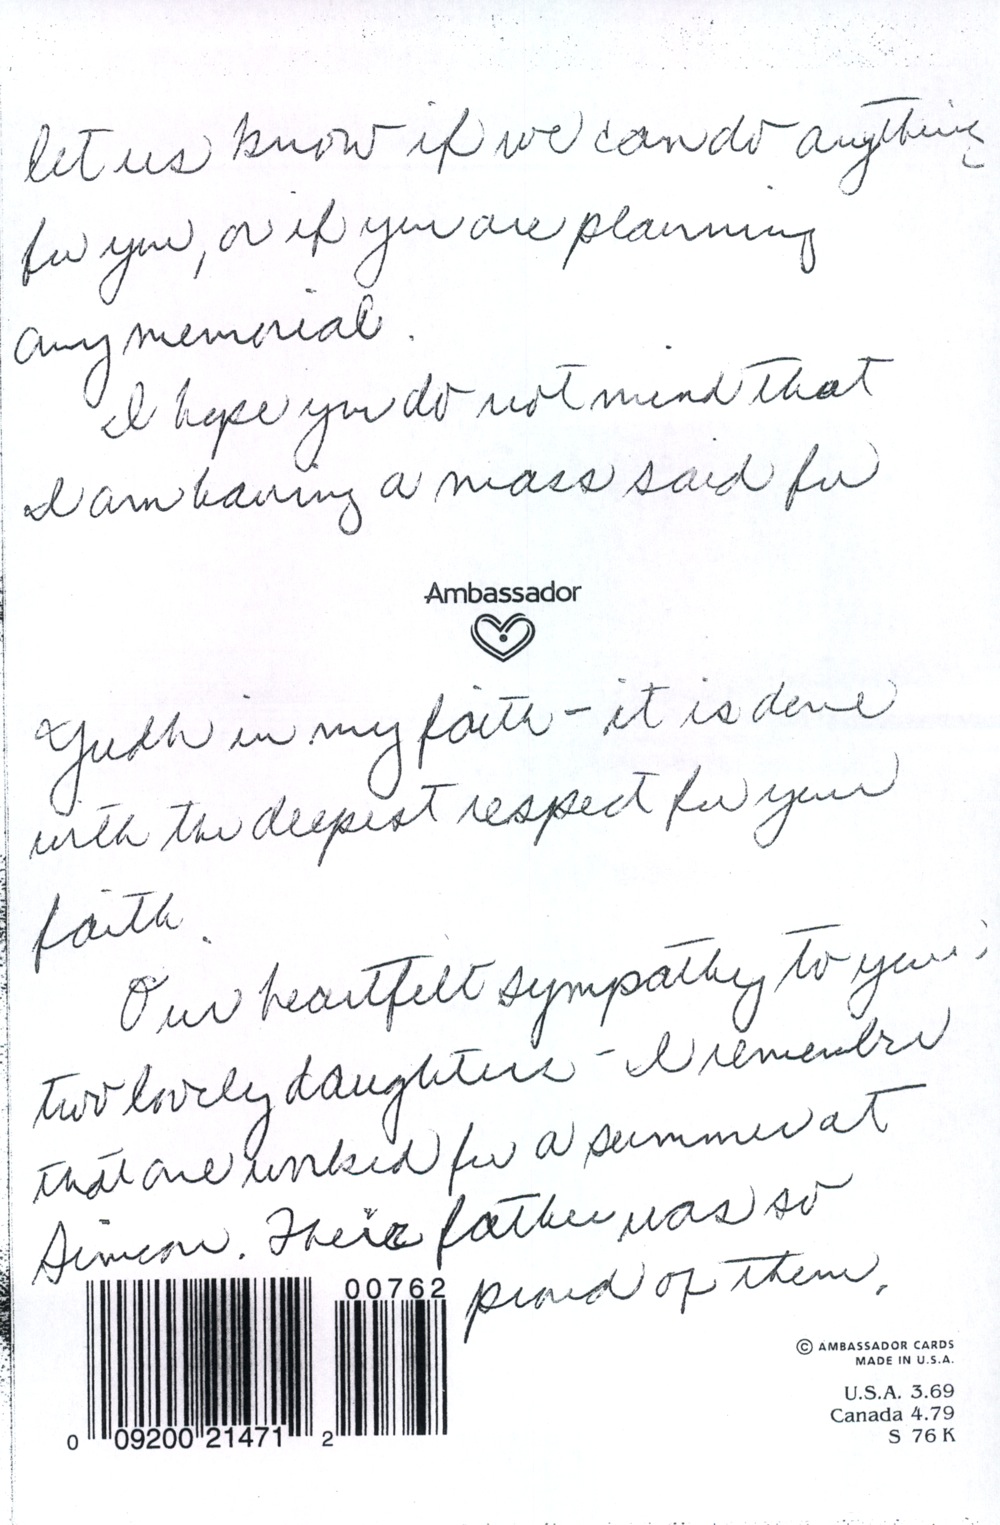 let us know if we can do anything
for you, or if you are planning
any memorial.
I hope you do not mind that
I am having a mass said for
Ambassador
Yudh in my faith – it is done
with the deepest respect for your
faith.
Our heartfelt sympathy to your
two lovely daughters – I remember
that one worked for a summer at
Simcom. Their father was so
proud of them.
00762
0 09200 21471 2
© AMBASSADOR CARDS
MADE IN U.S.A.
U.S.A. 3.69
Canada 4.79
S 76 K